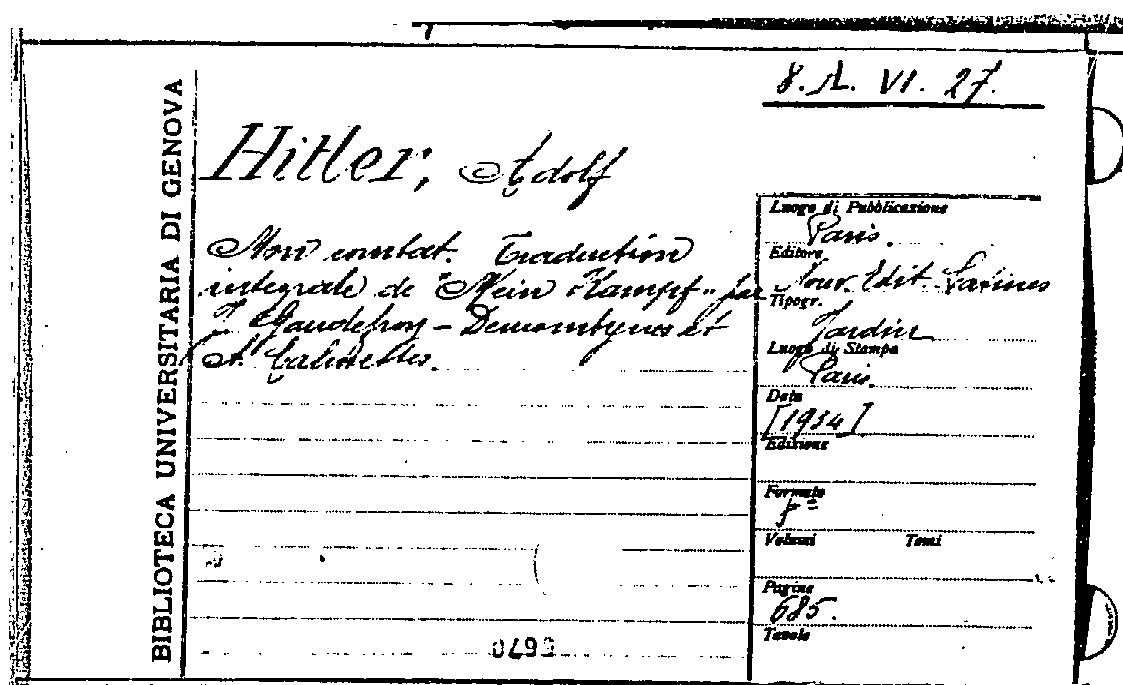 8. A. VI. 27.
BIBLIOTECA UNIVERSITARIA DI GENOVA
Hitler, Adolf
Mon combat. Traduction
integrale de "Mein Kampf" par
J. Gaudefroy - Demombynes et
A. Calmettes.
Luogo di Pubblicazione
Paris.
Editore
Nouv. Edit. Latines
Tipogr.
Jardin
Luogo di Stampa
Paris.
Data
[1934]
Edizione
Formato
Volumi Tomi
Pagine
685.
Tavole